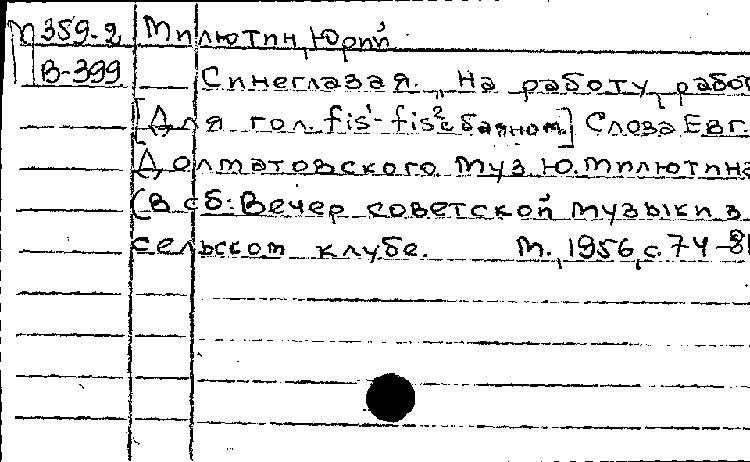 М359-2 Милютин, Юрий
В-399 Синеглазая. „На работу, рабо
[Для гол. fis¹-fis² с баяном] Слова Евг.
Долматовского Муз. Ю. Милютина
(В сб.: Вечер советской музыки в
сельском клубе. М., 1956, с. 74-81